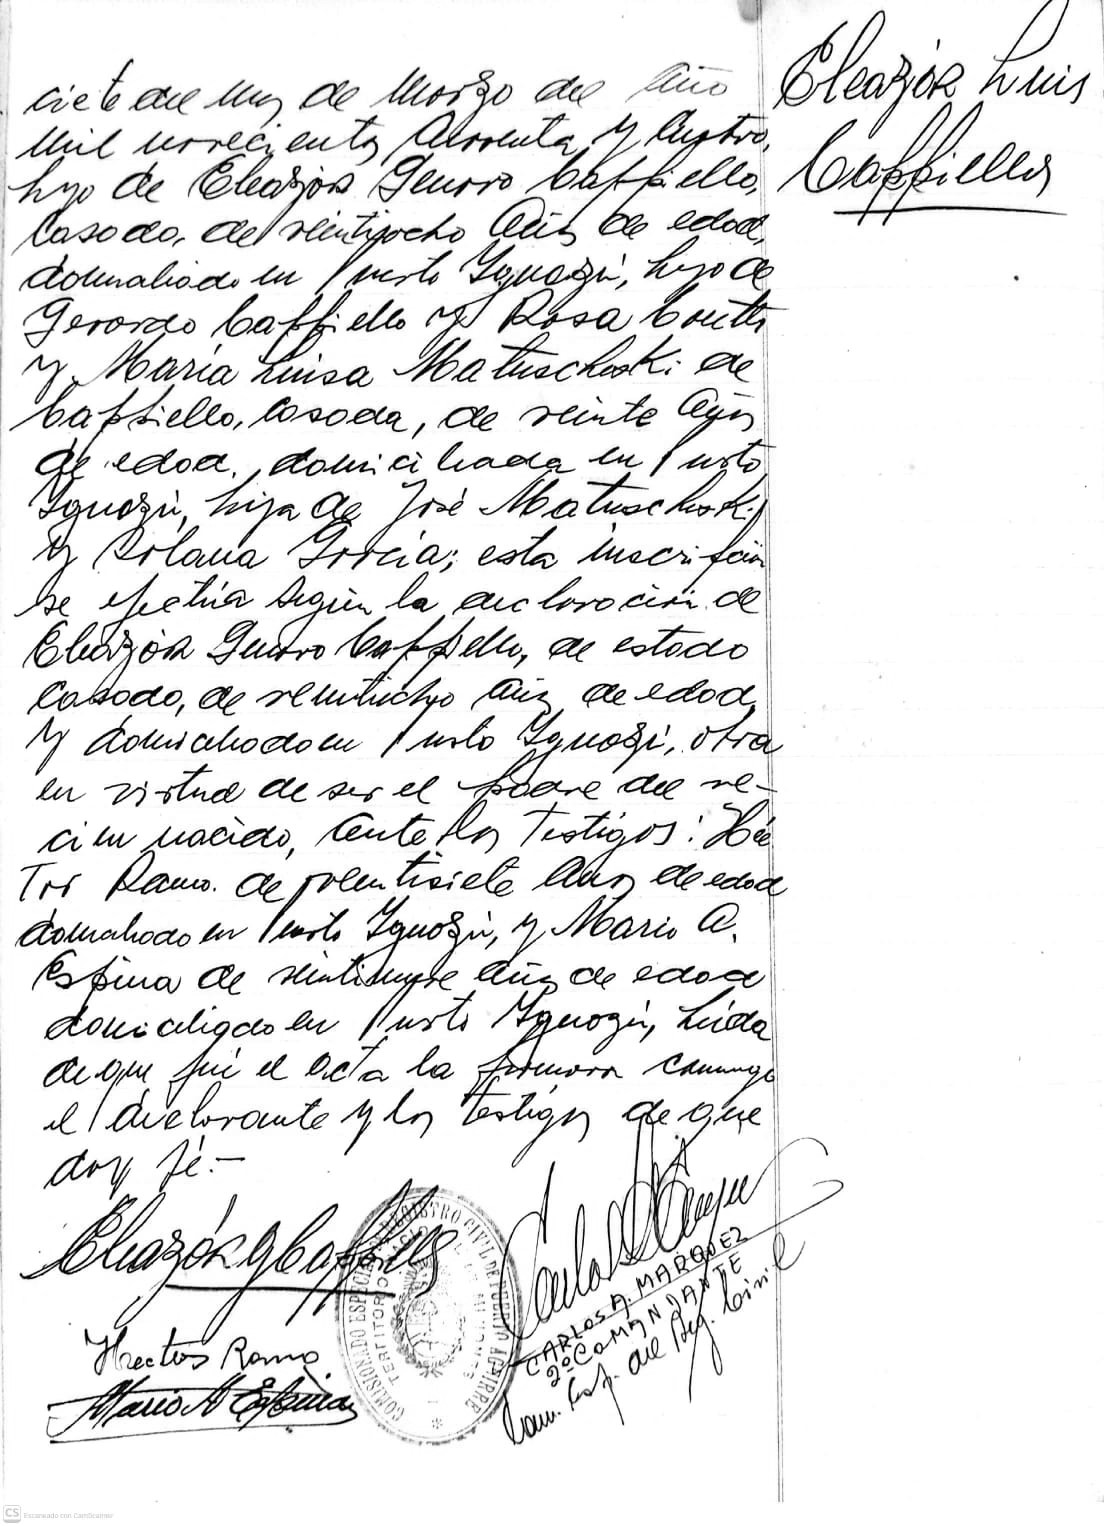 ciete del mes de Marzo del Año
Mil novecientos Cuarenta y Cuatro,
hijo de Eleazár Genaro Caffiello,
Casado, de veintiocho Años de edad,
domiciliado en Puerto Iguazú, hijo de
Gerardo Caffiello y Rosa
y María Luisa Matuscheski de
Caffiello, Casada, de veinte Años
de edad, domiciliada en Puerto
Iguazú, hija de José Matuscheski
y Rolana García; esta inscripción
se efectúa según la declaración de
Eleazár Genaro Caffiello, de estado
Casado, de veintiocho Años de edad
y domiciliado en Puerto Iguazú, obra
en virtud de ser el padre del re-
cien nacido, Ante los Testigos: Héc
Tor Ramo. de veintisiete Años de edad
domiciliado en Puerto Iguazú, y Mario A.
Espina de veintinueve Años de edad
domiciliado en Puerto Iguazú, Leída
de que fué el Acta la firmaron conmigo
el declarante y los testigos de que
doy fé.-
Eleazár Luis
Caffiello
Eleazár G Caffiello
Hector Ramo
Mario A Espina
COMISIONADO ESPECIAL DE REGISTRO CIVIL DE PUERTO AGUIRRE
TERRITORIO DE MISIONES
CARLOS A. MARQUEZ
2º COMANDANTE
Com. Esp. del Reg. Civil
CS Escaneado con CamScanner